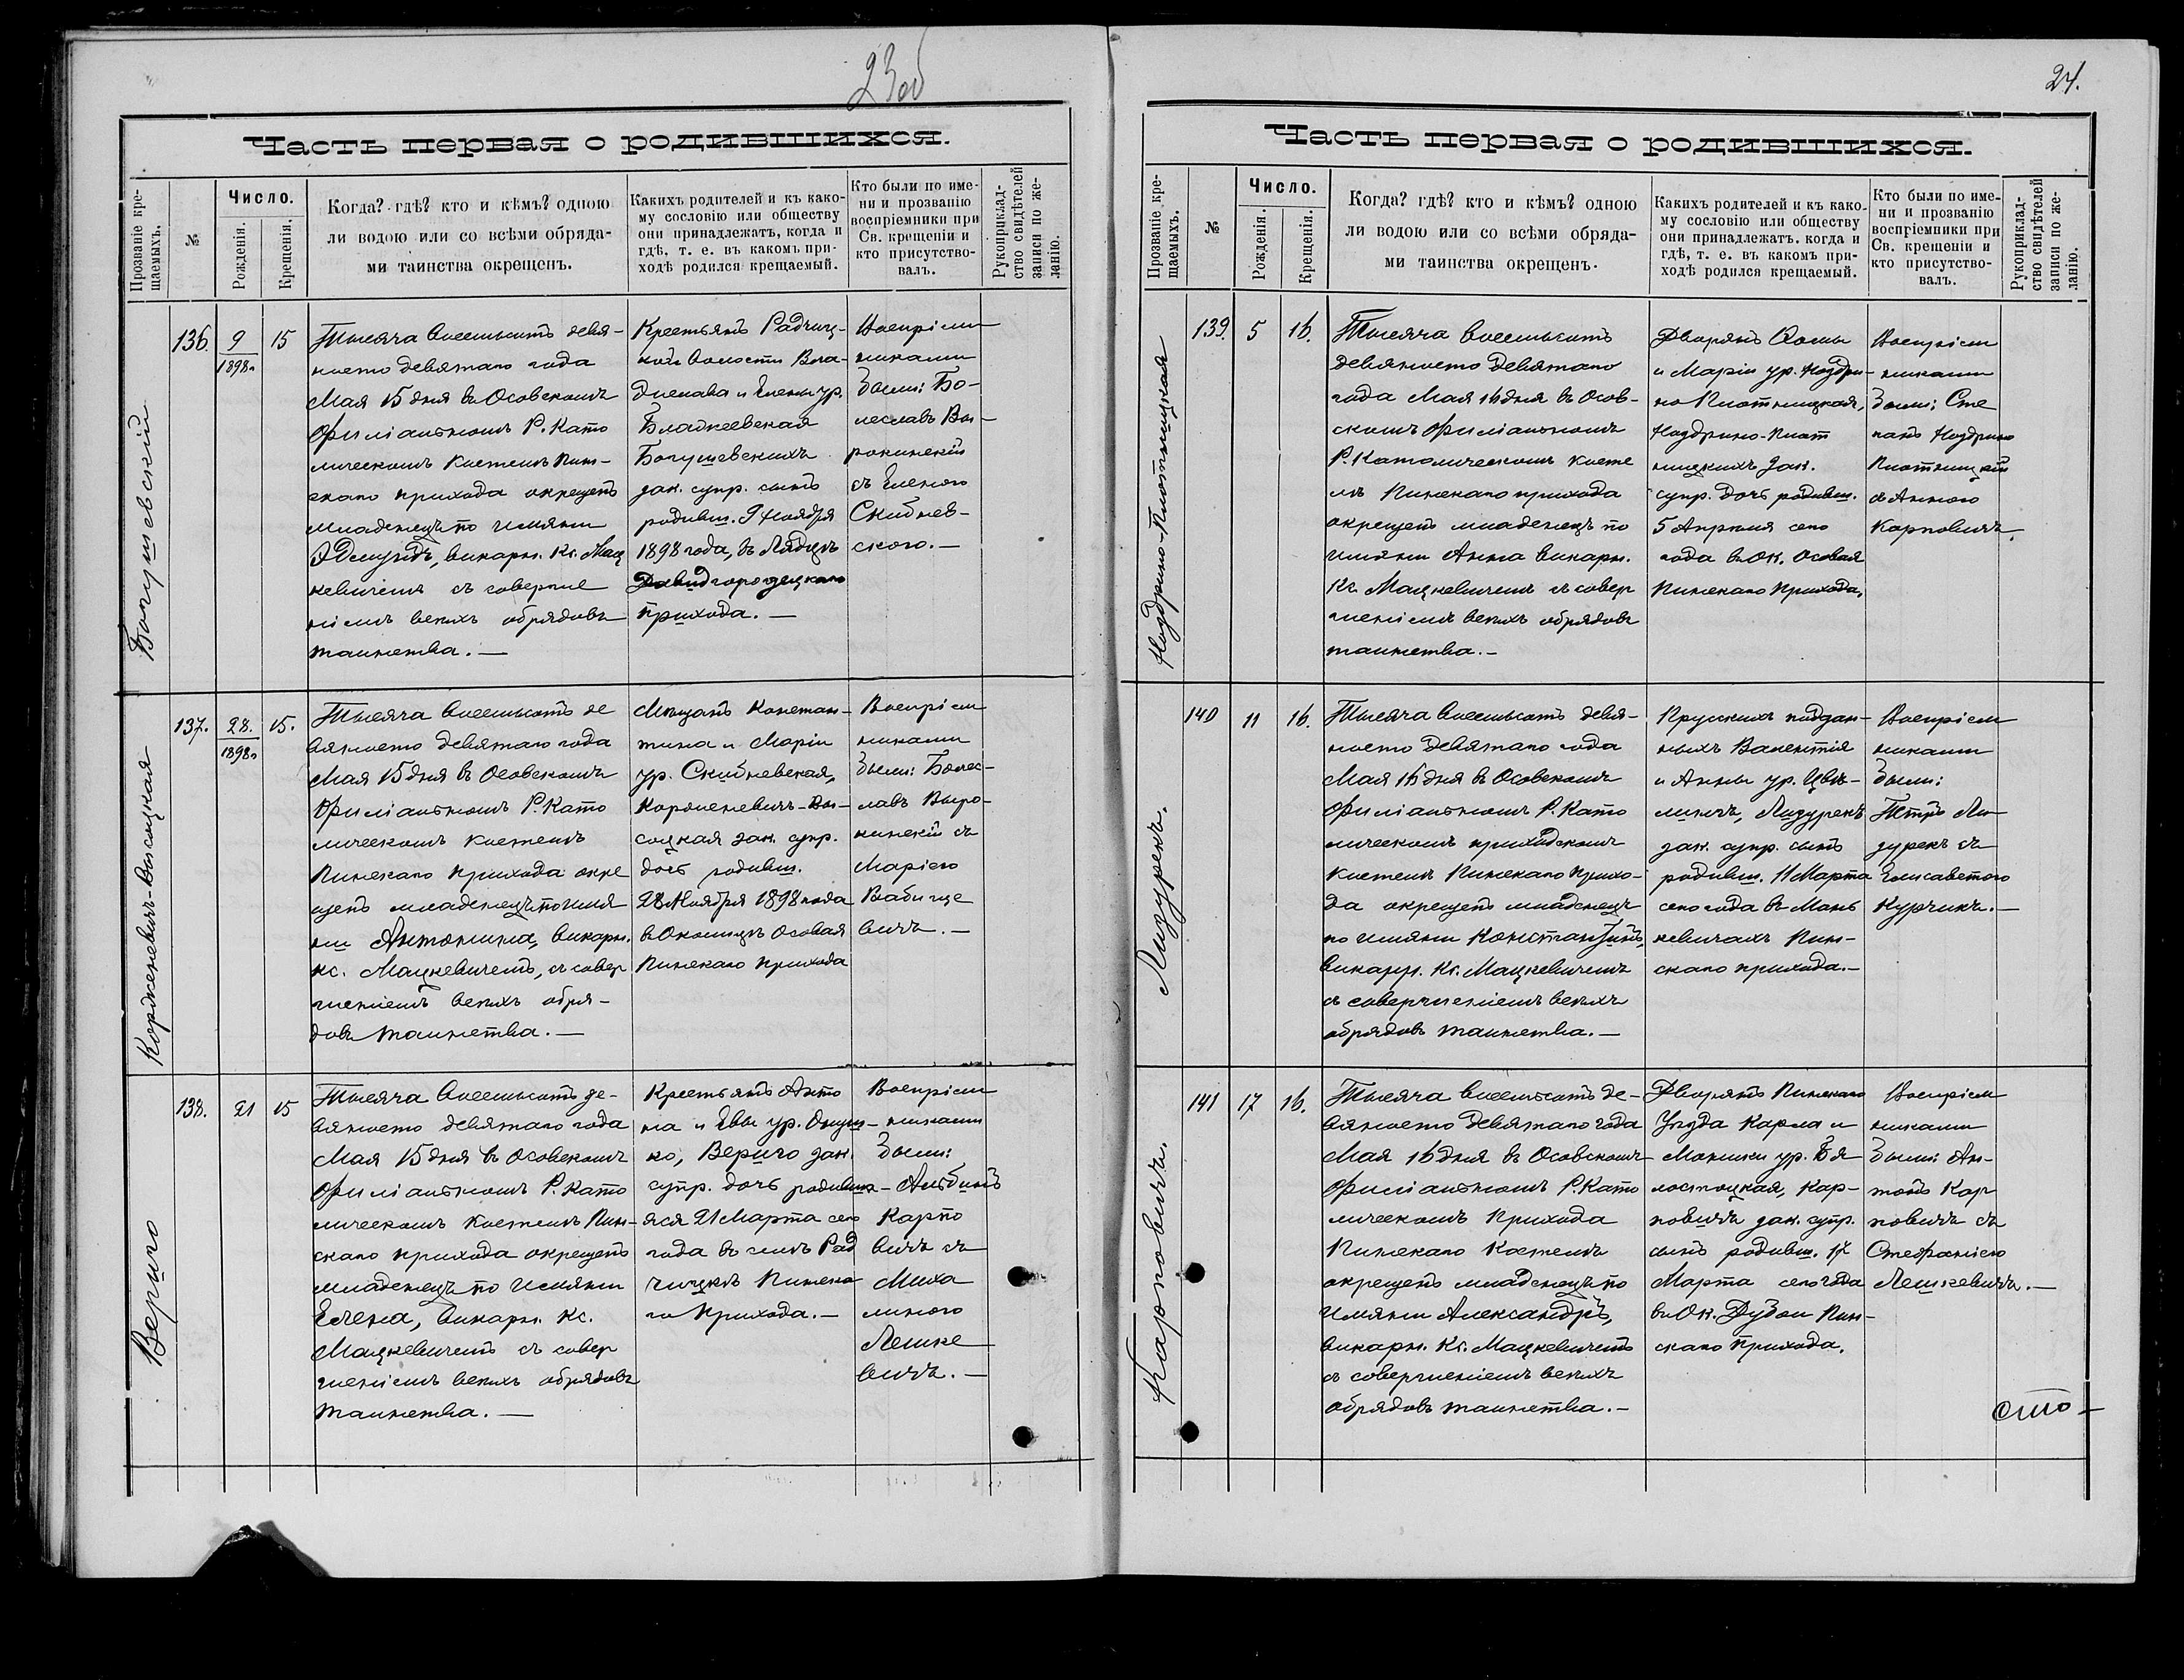 23об
Часть первая о родившихся.
Прозваніе кре-
щаемыхъ.
№
Число.
Рожденія.
Крещенія.
Когда? гдѣ? кто и кѣмъ? одною
ли водою или со всѣми обряда-
ми таинства окрещенъ.
Какихъ родителей и къ како-
му сословію или обществу
они принадлежатъ, когда и
гдѣ, т. е. въ какомъ при-
ходѣ родился крещаемый.
Кто были по име-
ни и прозванію
воспріемники при
Св. крещеніи и
кто присутство-
валъ.
Рукоприклад-
ство свидѣтелей
записи по же-
ланію.
Богушевскій
136.
9
1898г.
15
Тысяча восемьсотъ девя-
носто девятаго года
Мая 15 дня въ Осовскомъ
Филіальномъ Р. Като
лическомъ костелѣ Пин-
скаго прихода окрещенъ
младенецъ по имяни
Эдмундъ, викарн. Кс. Мац
кевичемъ съ соверше
ніемъ всѣхъ обрядовъ
таинства.—
Крестьянъ Радчиц-
кой волости Вла-
дислава и Елены ур.
Бладкеевская
Богушевскихъ
зак. супр. сынъ
родивш. 9 Ноября
1898 года, въ Лядцѣ
Давидгородецкаго
прихода.—
Воспріем
никами
были: Бо-
леславъ Вы-
рокинскій
съ Еленою
Скибнев-
скою.—
Корженевичъ-Высоцкая
137.
28.
1898г.
15.
Тысяча восемьсотъ де
вяносто девятаго года
Мая 15 дня въ Осовскомъ
Филіальномъ Р. Като
лическомъ костелѣ
Пинскаго прихода окре
щенъ младенецъ по имя
ни Антонина, викарн.
кс. Мацкевичемъ, съ совер
шеніемъ всѣхъ обря-
довъ таинства.—
Мѣщанъ Констан-
тина и Маріи
ур. Скибневская,
Корженевичъ-Вы-
соцкая зак. супр.
дочь родивш.
28 Ноября 1898 года
въ Околицѣ Осовая
Пинскаго прихода
Воспріем
никами
были: Болес-
лавъ Выро-
кинскій съ
Маріею
Бабище
вичъ.—
Вериго
138.
21
15
Тысяча восемьсотъ де-
вяносто девятаго года
Мая 15 дня въ Осовскомъ
Филіальномъ Р. Като
лическомъ костелѣ Пин-
скаго прихода окрещенъ
младенецъ по имяни
Елена, викарн. кс.
Мацкевичемъ съ совер
шеніемъ всѣхъ обрядовъ
таинства.—
Крестьянъ Анто
на и Евы ур. Онуш-
ко, Вериго зак.
супр. дочь родивша-
яся 21 Марта сего
года въ селѣ Рад
чицкѣ Пинска
го прихода.—
Воспріем
никами
были:
Альбинъ
Карпо
вичъ съ
Миха
линою
Лешке
вичъ.—
24.
Часть первая о родившихся.
Прозваніе кре-
щаемыхъ.
№
Число.
Рожденія.
Крещенія.
Когда? гдѣ? кто и кѣмъ? одною
ли водою или со всѣми обряда-
ми таинства окрещенъ.
Какихъ родителей и къ како-
му сословію или обществу
они принадлежатъ. когда и
гдѣ, т. е. въ какомъ при-
ходѣ родился крещаемый.
Кто были по име-
ни и прозванію
воспріемники при
Св. крещеніи и
кто присутство-
валъ.
Рукоприклад-
ство свидѣтелей
записи по же-
ланію.
Ноздрино-Плотницкая
139.
5
16.
Тысяча восемьсотъ
девяносто девятаго
года Мая 16 дня въ Осов-
скомъ Филіальномъ
Р. Католическомъ косте
лѣ Пинскаго прихода
окрещенъ младенецъ по
имяни Анна викарн.
Кс. Мацкевичемъ съ совер
шеніемъ всѣхъ обрядовъ
таинства.—
Дворянъ Фомы
и Маріи ур. Ноздри-
но Плотницкая,
Ноздрино-Плот
ницкихъ зак.
супр. дочь родивш.
5 Апрѣля сего
года въ Ок. Осовая
Пинскаго прихода.
Воспріем
никами
были: Сте
панъ Ноздрино
Плотницкій
съ Анною
Карповичъ.
Мазурекъ.
140
11
16.
Тысяча восемьсотъ девя-
носто девятаго года
Мая 16 дня въ Осовскомъ
Филіальномъ Р. Като
лическомъ приходскомъ
костелѣ Пинскаго прихо-
да окрещенъ младенецъ
по имяни Константинъ,
викарн. Кс. Мацкевичемъ
съ совершеніемъ всѣхъ
обрядовъ таинства.—
Прусскихъ поддан-
ныхъ Валентія
и Анны ур.
Мазурекъ
зак. супр. сынъ
родивш. 11 Марта
сего года въ Мань
кевичахъ Пин-
скаго прихода.—
Воспріем
никами
были:
Петръ Ма
зурекъ съ
Елисаветою
Курчикъ.—
Карповичъ.
141
17
16.
Тысяча восемьсотъ де-
вяносто девятаго года
Мая 16 дня въ Осовскомъ
Филіальномъ Р. Като
лическомъ Прихода
Пинскаго Костелѣ
окрещенъ младенецъ по
имяни Александръ,
викарн. Кс. Мацкевичемъ
съ совершеніемъ всѣхъ
обрядовъ таинства.—
Дворянъ Пинскаго
Уѣзда Карла и
Моники ур. Бѣ
лостоцкая, Кар-
повичъ зак. супр.
сынъ родивш. 17
Марта сего года
въ Ок. Дубои Пин-
скаго прихода.
Воспріем
никами
были: Ан-
тонъ Кар
повичъ съ
Стефаніею
Лешкевичъ.—